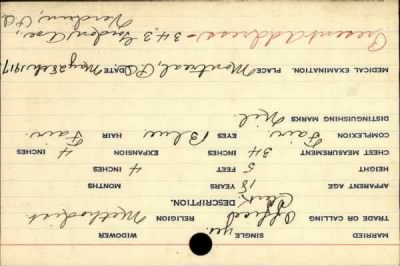 MARRIED SINGLE yes. WIDOWER
TRADE OR CALLING Office RELIGION Methodist
Clerk. DESCRIPTION.
APPARENT AGE 18 YEARS MONTHS
HEIGHT 5 FEET 4 INCHES
CHEST MEASUREMENT 34 INCHES EXPANSION 4 INCHES
COMPLEXION Fair EYES Blue HAIR Fair.
DISTINGUISHING MARKS Nil.
MEDICAL EXAMINATION. PLACE Montreal, P.Q. DATE May 25th. 1917
Present address - 343 Gordon Ave.,
Verdun, P.Q.